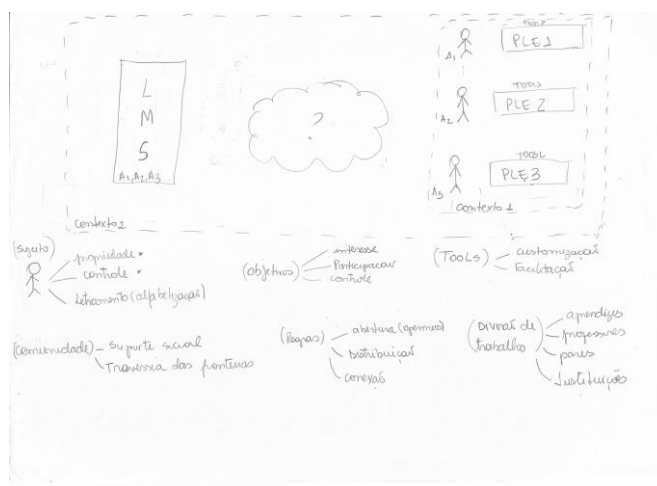 TOOLS
PLE1
A1
TOOLS
PLE 2
A2
TOOLS
PLE3
A3
contexto 1
L
M
S
A1, A2, A3
?
contexto 2
(Sujeito)
propriedade
controle
Letramento (alfabetização)
(objetivos)
interesse
Participação
controle
(TOOLS)
customização
Facilitação
(comunidade)
Suporte social
Travessia das fronteiras
(Regras)
abertura (openness)
Distribuição
conexão
(Divisão de
trabalho)
aprendizes
professores
pares
Instituições